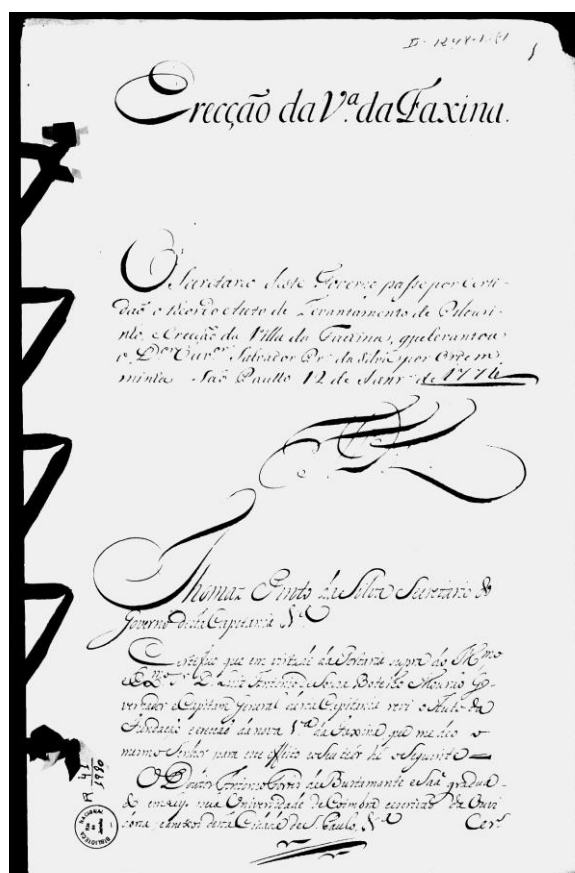 Erecção da Vª. da Faxina.
O Secretario deste Governo passe por Certi-
daõ o theor do Auto de Levantamento de Pelouri-
nho, e Erecção da Villa da Faxina, que levantou
o Salvador Prª. da Silva, por Ordem
minha. Saõ Paullo 12 de Janrº. de 1774
Thomaz Pinto da Silva Secretario do
Governo desta Capitania &ª
Certifico que em virtude da Portaria supra do Illmo
e Exmo Sr. D. Luiz Antonio de Souza Botelho Mouraõ Go-
vernador e Capitam General desta Capitania revi o Auto da
Fundaçaõ e erecçaõ da nova Vª da Faxina, que me deo o
mesmo Senhor para esse effeito e o seu teor hé o seguinte
O Doutor Antonio Fortes de Bustamante e Saá, gradua-
do em Leys na Universidade de Coimbra da Ouvi-
desta Cidade de S. Paulo, &ª Cer
R 41
1990
BIBLIOTHECA NACIONAL